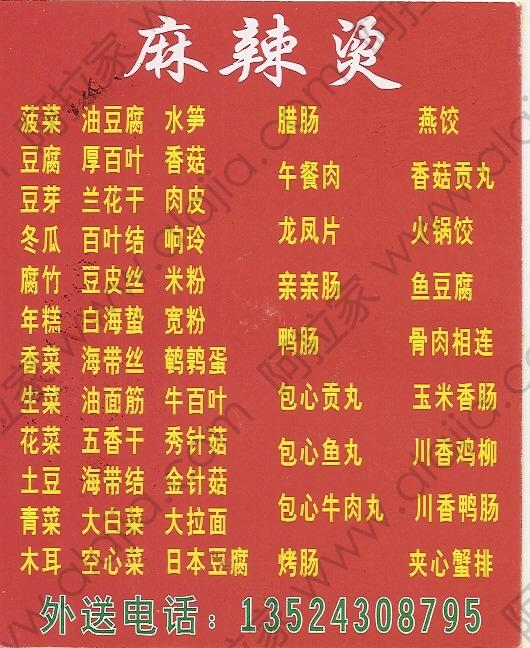 麻辣烫
菠菜 油豆腐 水笋 腊肠 燕饺
豆腐 厚百叶 香菇 午餐肉 香菇贡丸
豆芽 兰花干 肉皮 龙凤片 火锅饺
冬瓜 百叶结 响玲 亲亲肠 鱼豆腐
腐竹 豆皮丝 米粉 鸭肠 骨肉相连
年糕 白海蛰 宽粉 包心贡丸 玉米香肠
香菜 海带丝 鹌鹑蛋 包心鱼丸 川香鸡柳
生菜 油面筋 牛百叶 包心牛肉丸 川香鸭肠
花菜 五香干 秀针菇 烤肠 夹心蟹排
土豆 海带结 金针菇
青菜 大白菜 大拉面
木耳 空心菜 日本豆腐
外送电话：13524308795
阿拉家 www.alajia.com